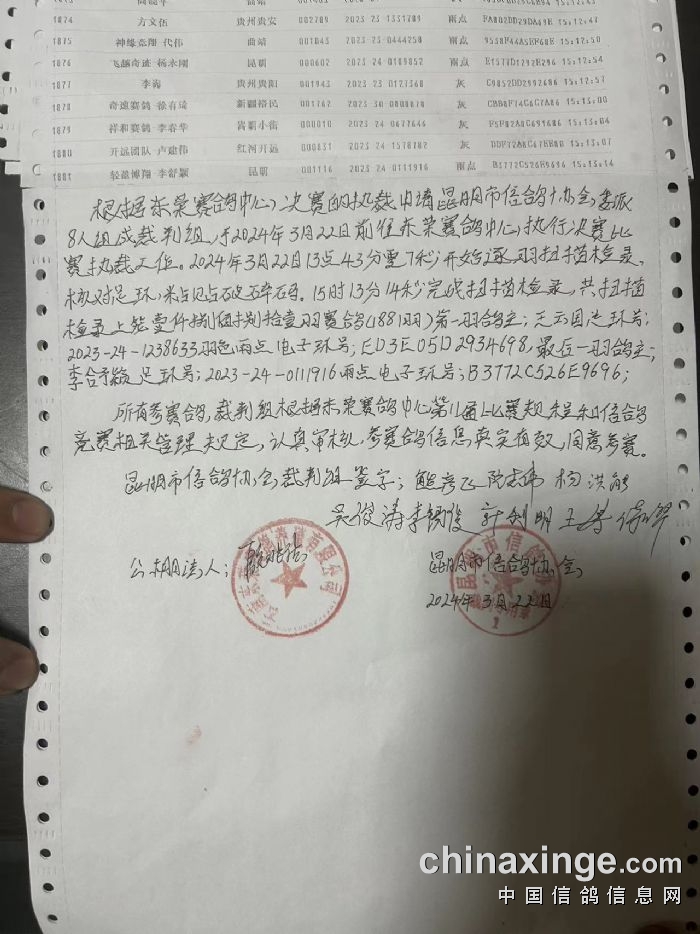 1874 方文伍 贵州贵安 002789 2023 23 1331789 雨点 15:12:47
1875 神缘泰翔 代伟 曲靖 001043 2023 23-0444250 雨点 9538F44A5EF68E 15:12:50
1876 飞越奇迹 杨永刚 昆明 000602 2023 24 0189852 雨点 E1577D1292E296 15:12:54
1877 李海 贵州贵阳 001943 2023-23 0127368 灰 C9852DD2992686 15:12:57
1878 奇速赛鸽 徐有琦 新疆裕民 001762 2023-30 0808078 灰 15:13:00
1879 祥和赛鸽 李春华 嵩明小街 000010 2023 24 0677646 灰 15:13:04
1880 开远团队 卢建伟 红河开远 000831 2023 24 1578782 灰 15:13:07
1881 轻盈博翔 李舒颖 昆明 001116 2023 24 0111916 雨点 B3772C526E9696 15:13:14
根据东荣赛鸽中心,决赛的执裁申请昆明市信鸽协会,委派
8人组成裁判组,于2024年3月22日前往东荣赛鸽中心,执行决赛比
赛执裁工作。2024年3月22日13点43分零7秒开始逐羽扫描检录、
核对足环,粘贴破碎码。15时13分14秒完成扫描检录,共扫描
检录上笼壹仟捌佰捌拾壹羽赛鸽(1881羽)第一羽鸽主;足环号:
2023-24-1238633羽色雨点 电子环号;ED3E05D2934698,最后一羽鸽主;
李舒颖足环号;2023-24-0111916雨点电子环号;B3772C526E9696;
所有参赛鸽,裁判组根据东荣赛鸽中心第11届比赛规程和信鸽
竞赛相关管理规定,认真审核,参赛鸽信息真实有效,同意参赛。
昆明市信鸽协会裁判组签字;
公棚法人;
昆明市信鸽协会
2024年3月22日
chinaxinge.com
中国信鸽信息网